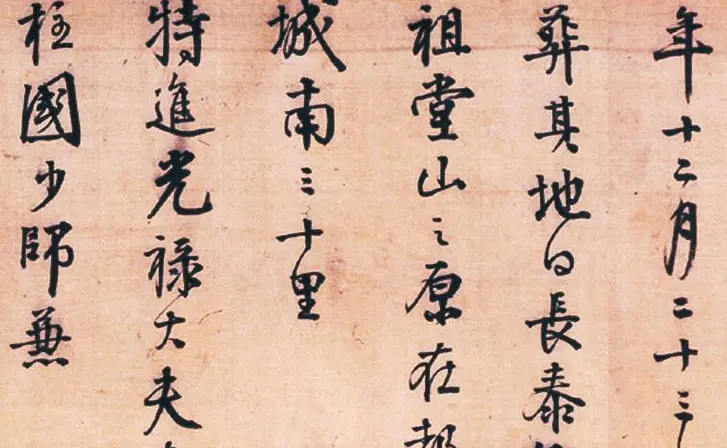 年十二月二十三
葬其地曰長泰
祖堂山之原在都
城南三十里
特進光祿大夫
柱國少師兼